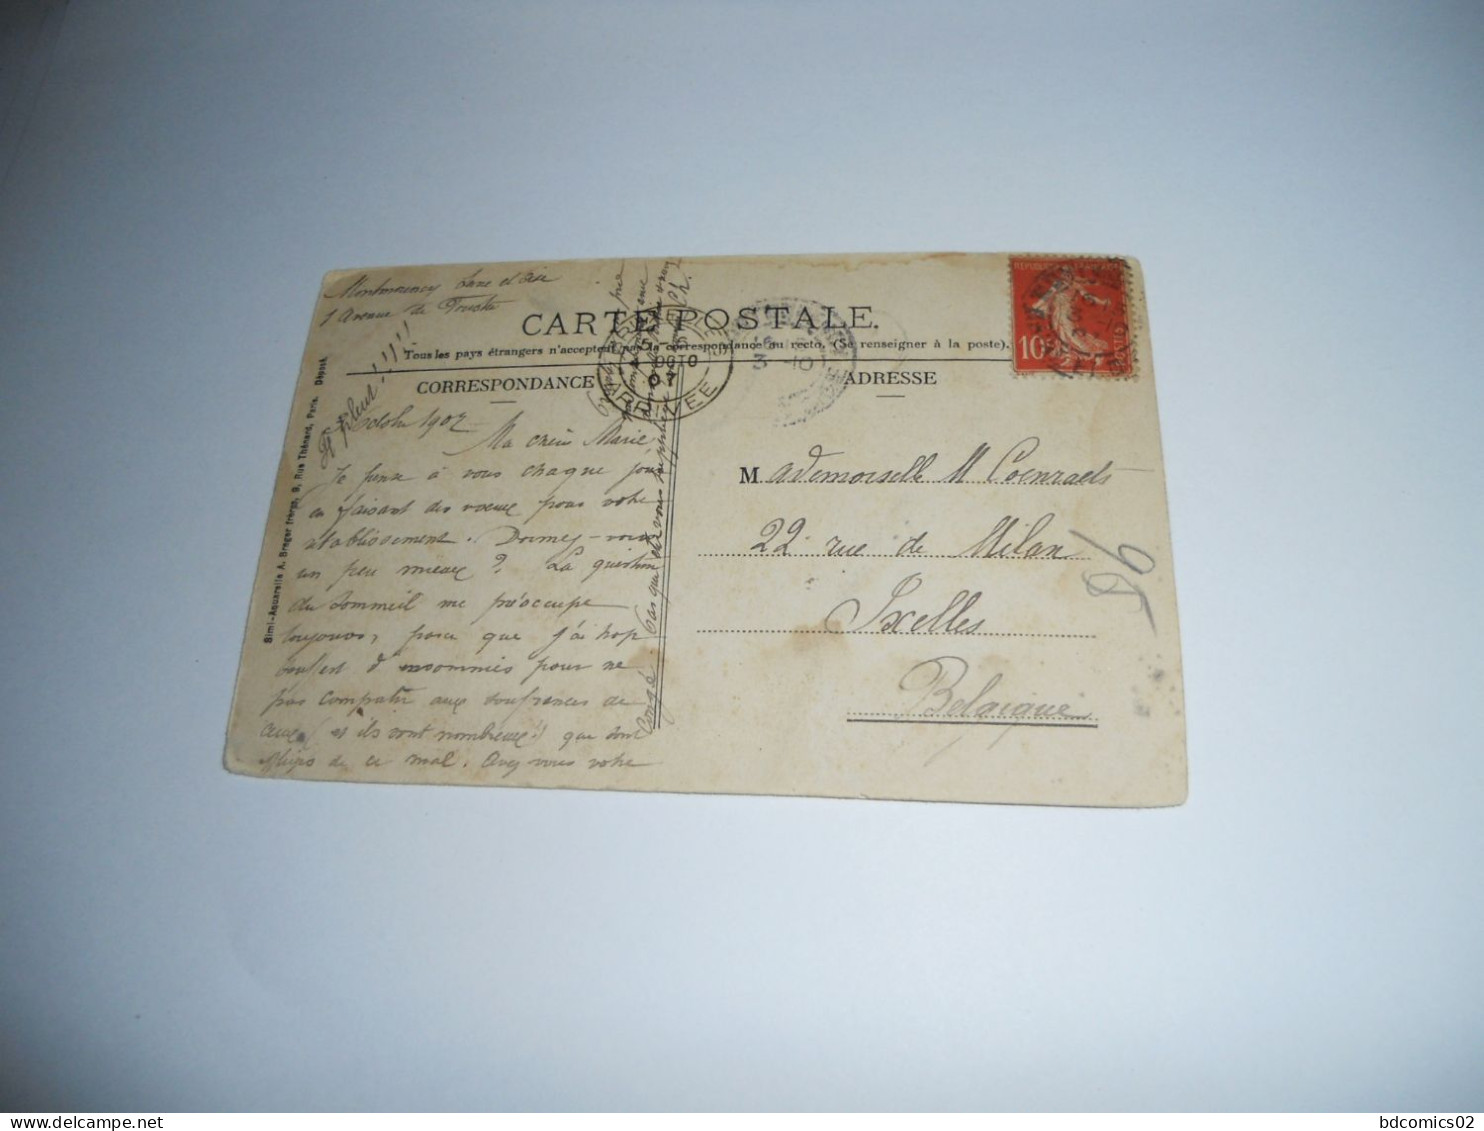 Montmorency Seine et Oise
1 Avenue de
CARTE POSTALE.
Tous les pays étrangers n'acceptent pas la correspondance au recto. (Se renseigner à la poste).
CORRESPONDANCE
ADRESSE
Il pleut!!!!
Octobre 1907
Ma chère Marie
Je pense à vous chaque jour
en faisant des vœux pour votre
établissement. Dormez-vous
un peu mieux? La question
du sommeil me préoccupe
toujours, parce que j'ai trop
souffert d'insomnies pour ne
pas compatir aux souffrances de
ceux (et ils sont nombreux!) qui sont
affligés de ce mal. Avez vous votre
congé
Mademoiselle M Coenraets
22 rue de Milan
Ixelles
Belgique
REPUBLIQUE
10
OCTO
07
3 -10
Simi-Aquarelle A. Breger frères, 9, Rue Thénard, Paris. Déposé
bdcomics02